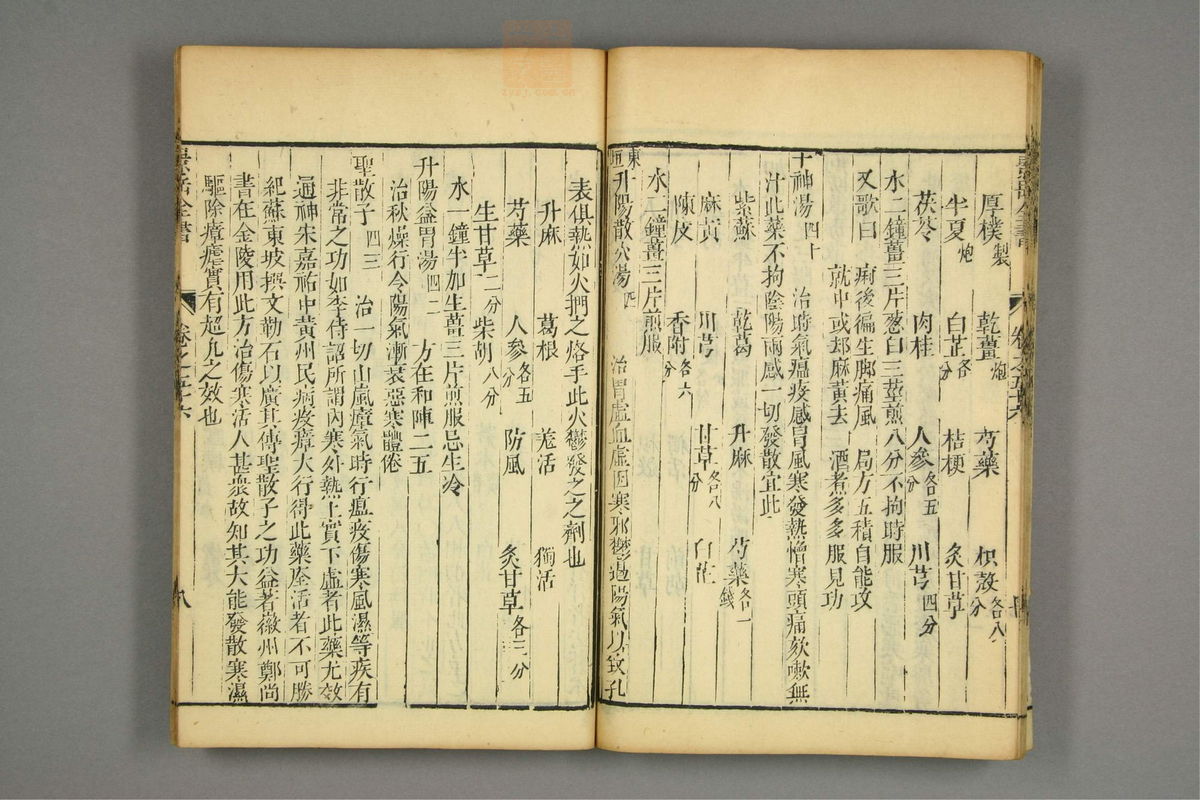 厚樸製 乾薑炮 芍藥 枳殼各八分
半夏炮 白芷各分 桔梗 炙甘草
茯苓 肉桂 人參各五分 川芎四分
水二鐘薑三片葱白三莖煎八分不拘時服
又歌曰 痢後徧生脚痛風 局方五積自能攻
就中或却麻黃去 酒煮多多服見功
十神湯四十 治時氣瘟疫感冒風寒發熱憎寒頭痛欬嗽無
汁此藥不拘陰陽兩感一切發散宜此
紫蘇 乾葛 升麻 芍藥各一錢
麻黃 川芎 甘草各八分 白芷
陳皮 香附各六分
水二鐘薑三片煎服
東垣升陽散火湯四一 治胃虛血虛因寒邪鬱遏陽氣以致孔
表俱熱如火捫之烙手此火鬱發之之劑也
升麻 葛根 羌活 獨活
芍藥 人參各五分 防風 炙甘草各三分
生甘草二分 柴胡八分
水一鐘半加生薑三片煎服忌生冷
升陽益胃湯四二 方在和陣二五
治秋燥行令陽氣漸衰惡寒體倦
聖散子四三 治一切山嵐瘴氣時行瘟疫傷寒風濕等疾有
非常之功如李侍詔所謂內寒外熱上實下虛者此藥尤效
通神宋嘉祐中黃州民病疫瘴大行得此藥全活者不可勝
紀蘇東坡撰文勒石以廣其傳聖散子之功益著徽州鄭尚
書在金陵用此方治傷寒活人甚衆故知其大能發散寒濕
驅除瘴瘧實有超凡之效也
景岳全書 卷之五十六 八